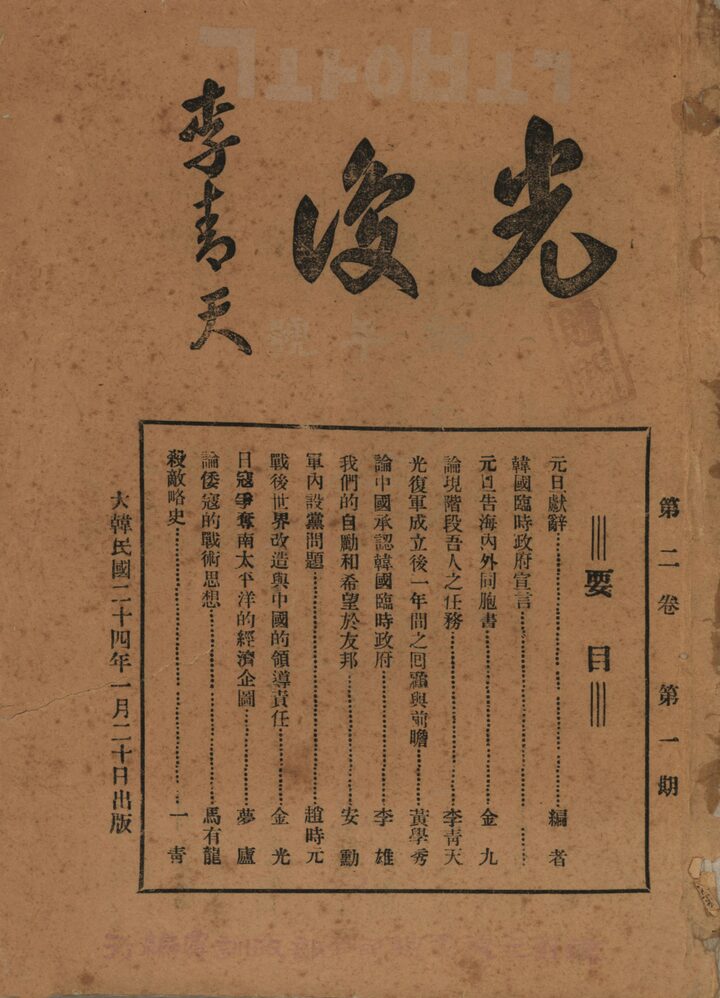 光復
李青天
第二卷 第一期
要目
元旦獻辭 編者
韓國臨時政府宣言
元旦告海內外同胞書 金九
論現階段吾人之任務 李青天
光復軍成立後一年間之回顧與前瞻 黃學秀
論中國承認韓國臨時政府 李雄
我們的自勵和希望於友邦 安勳
軍內設黨問題 趙時元
戰後世界改造與中國的領導責任 金光
日寇爭奪南太平洋的經濟企圖 夢廬
論倭寇的戰術思想 馬有龍
殺敵略史 一青
大韓民國二十四年一月二十日出版